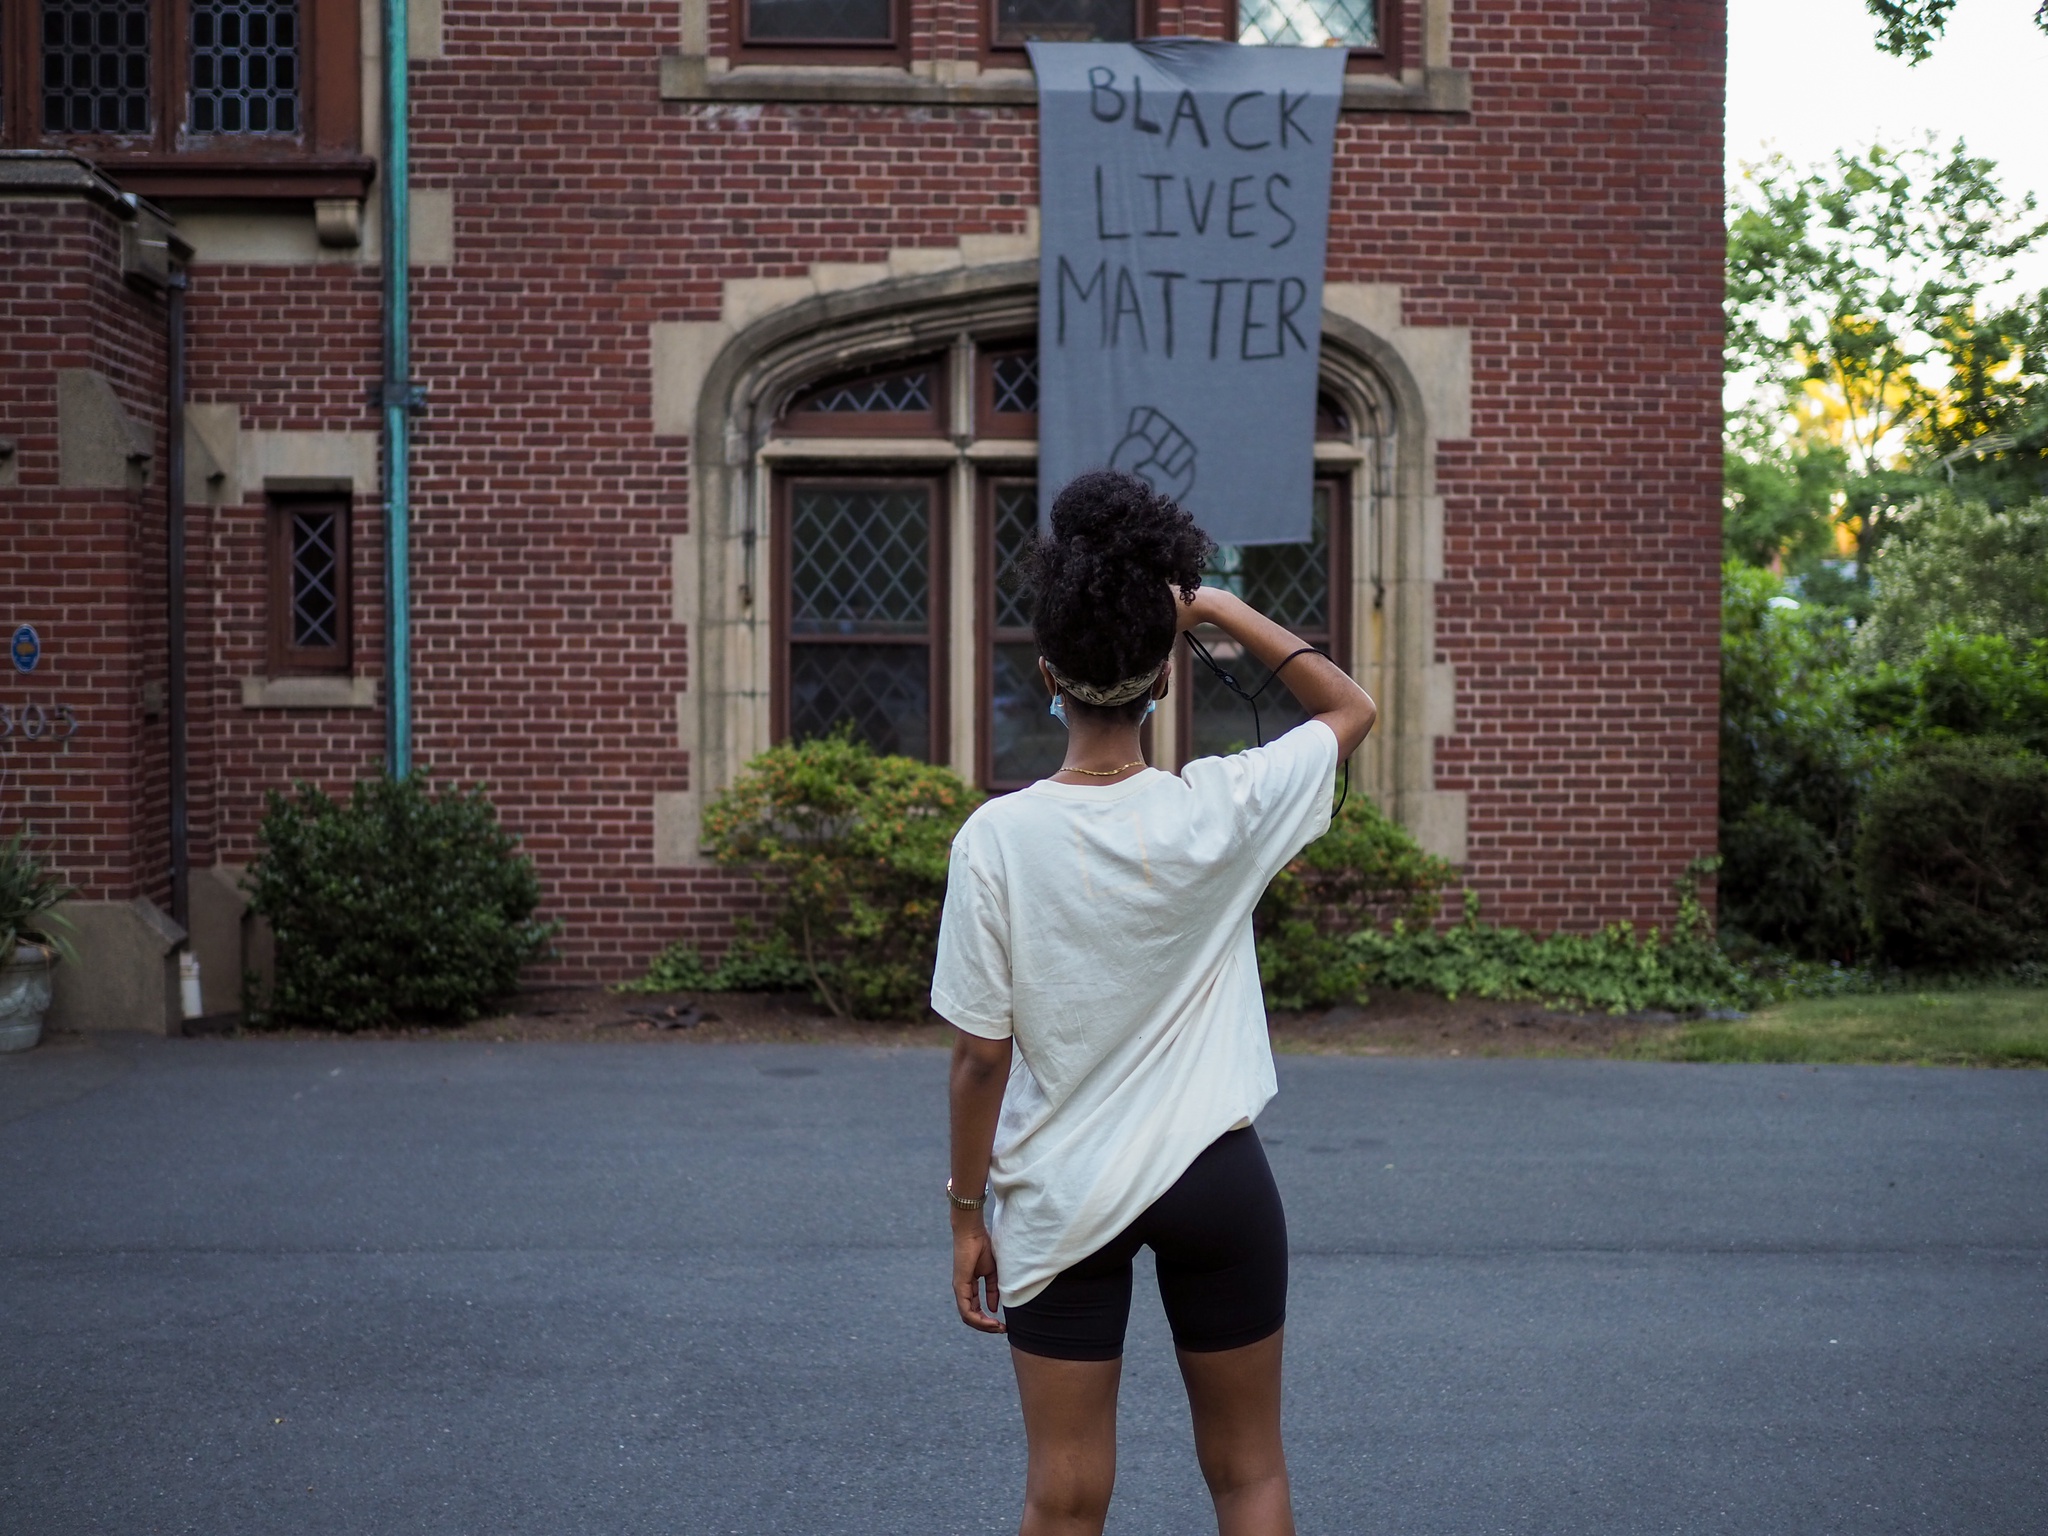 BLACK
LIVES
MATTER
305